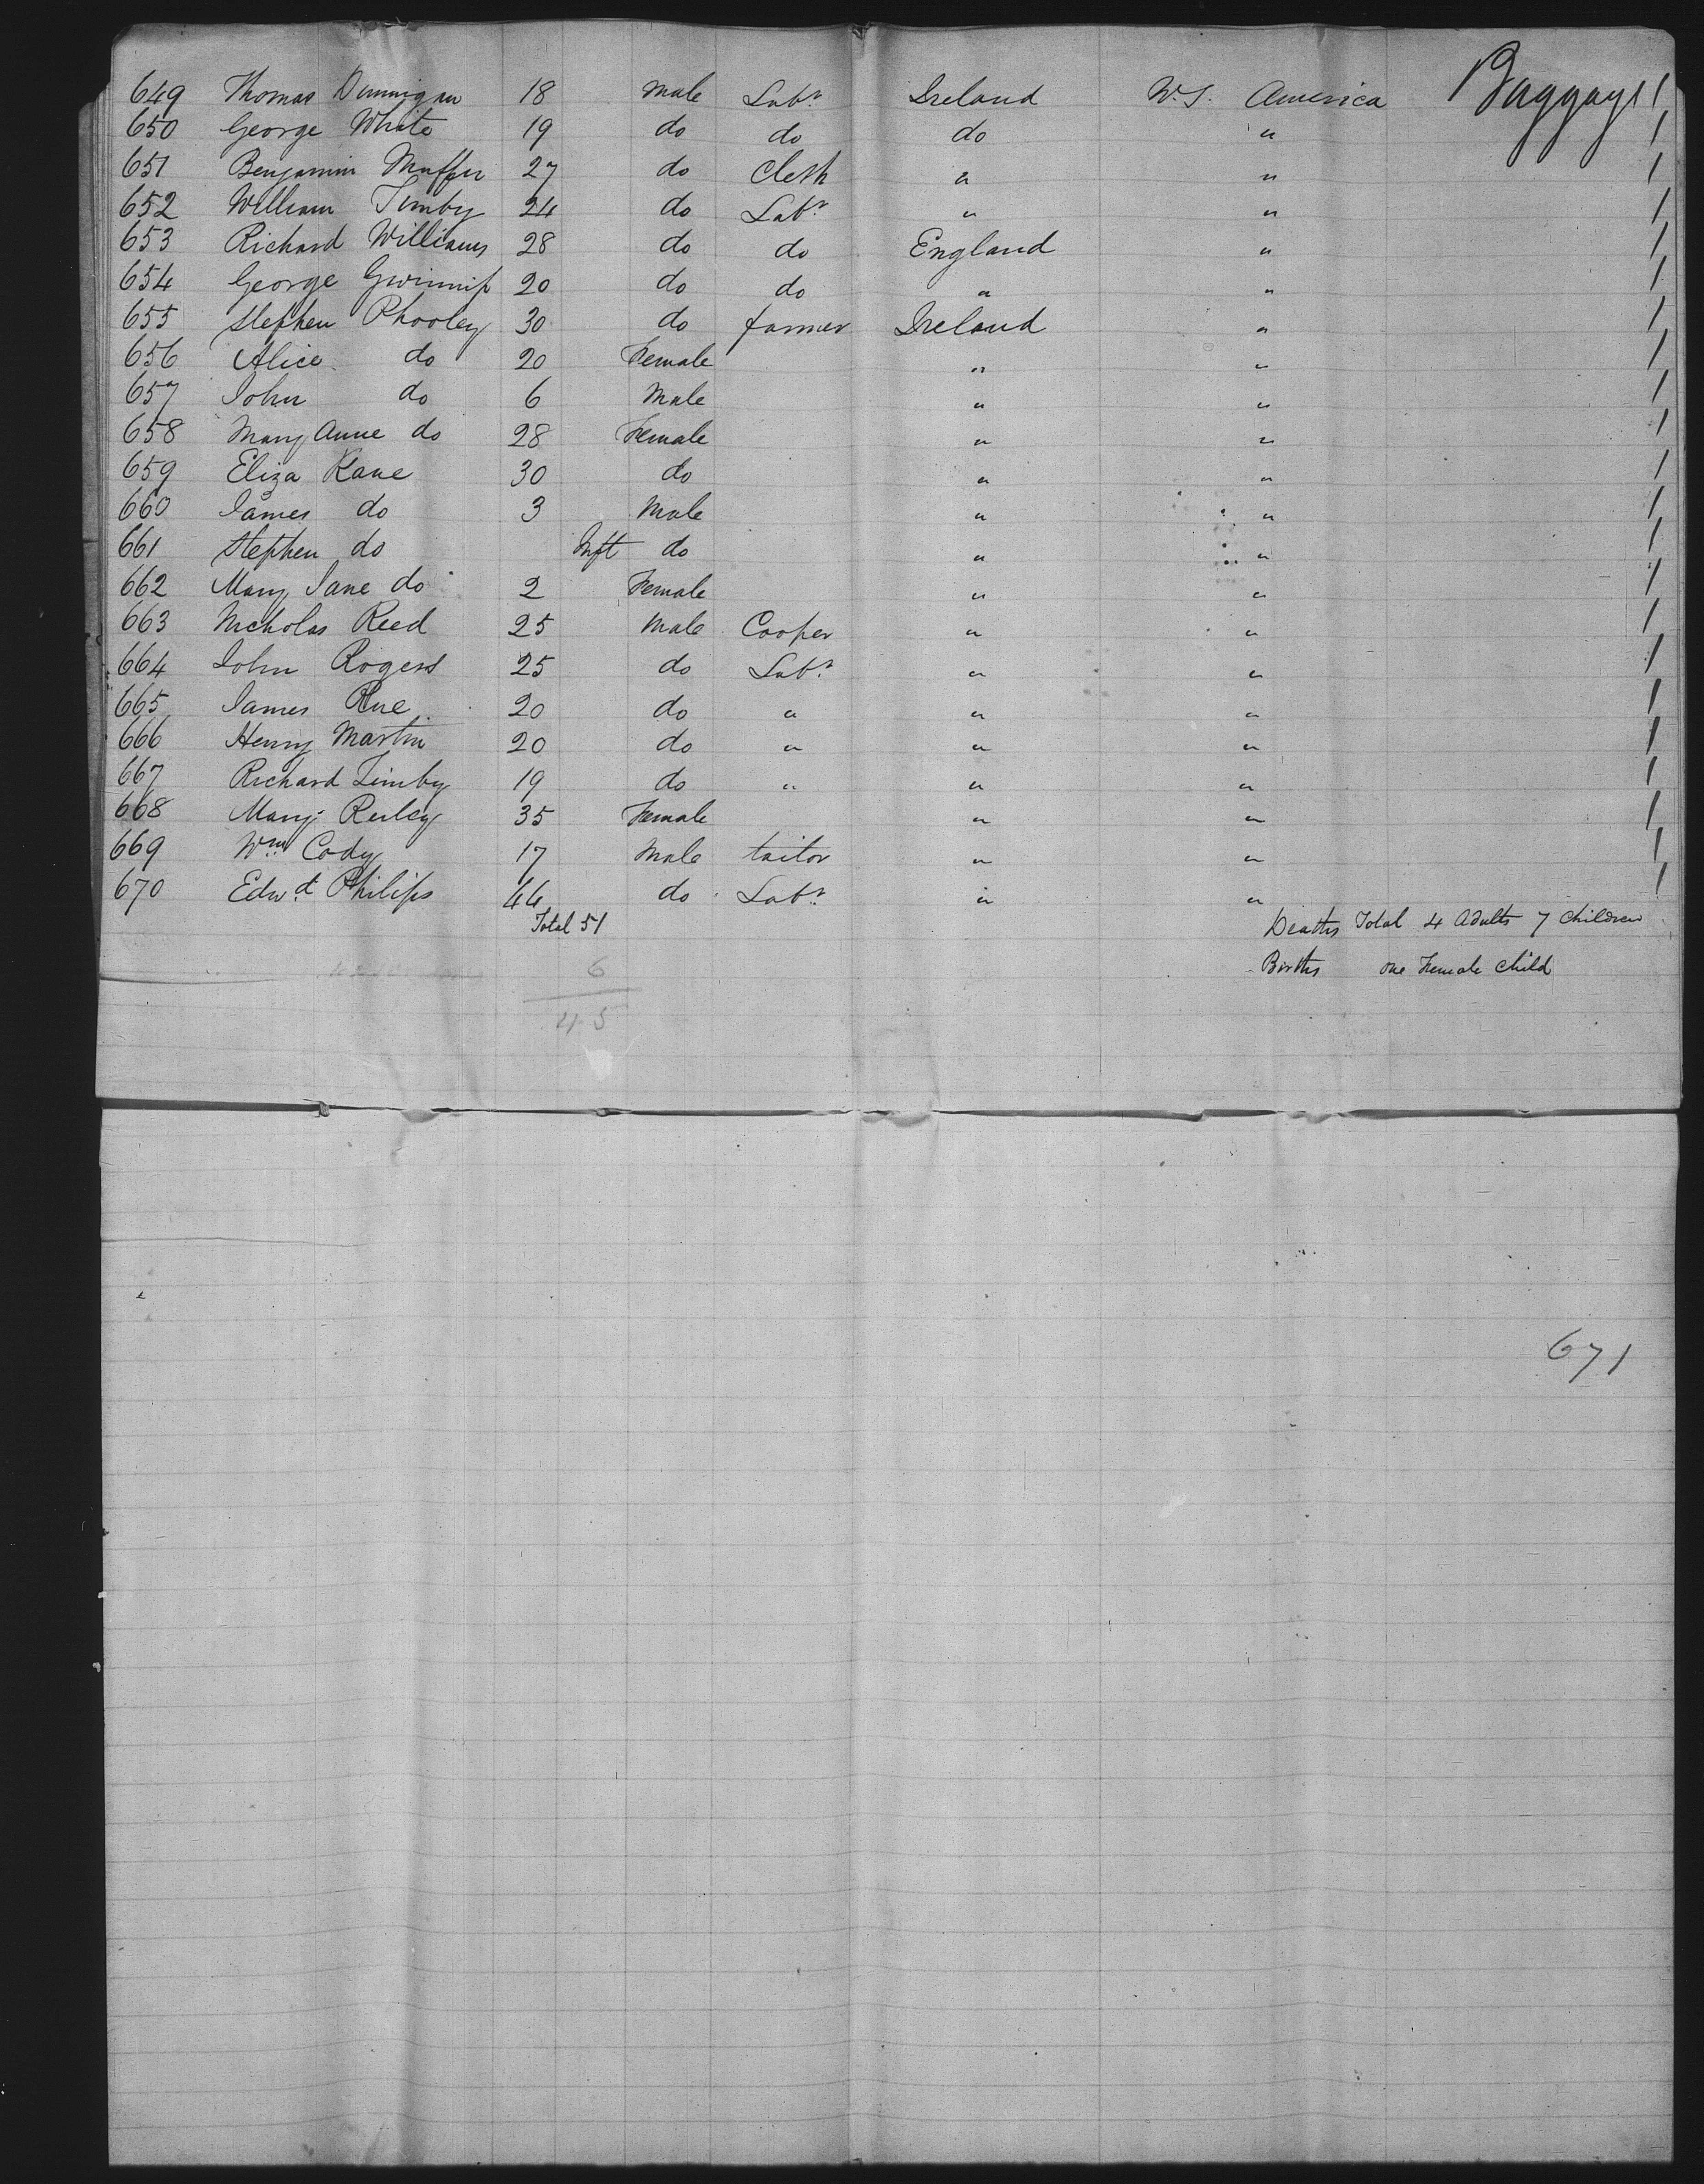 Baggage
649 Thomas Dunnigan 18 Male Labr Ireland U.S. America 1
650 George White 19 do do do " 1
651 Benjamin 27 do Clerk " " 1
652 William Timby 24 do Labr " " 1
653 Richard Williams 28 do do England " 1
654 George 20 do do " " 1
655 Stephen Phooley 30 do farmer Ireland " 1
656 Alice do 20 Female " " 1
657 John do 6 Male " " 1
658 Mary Anne do 28 Female " " 1
659 Eliza Kane 30 do " " 1
660 James do 3 Male " " 1
661 Stephen do Inft do " " 1
662 Mary Jane do 2 Female " " 1
663 Nicholas Reed 25 Male Cooper " " 1
664 John Rogers 25 do Labr " " 1
665 James Rue 20 do " " " 1
666 Henry Martin 20 do " " " 1
667 Richard Timby 19 do " " " 1
668 Mary Reiley 35 Female " " 1
669 Wm Cody 17 Male tailor " " 1
670 Edwd Philips 44 do Labr " " 1
Total 51 Deaths Total 4 Adults 7 Children
6 Births one Female Child
45
671